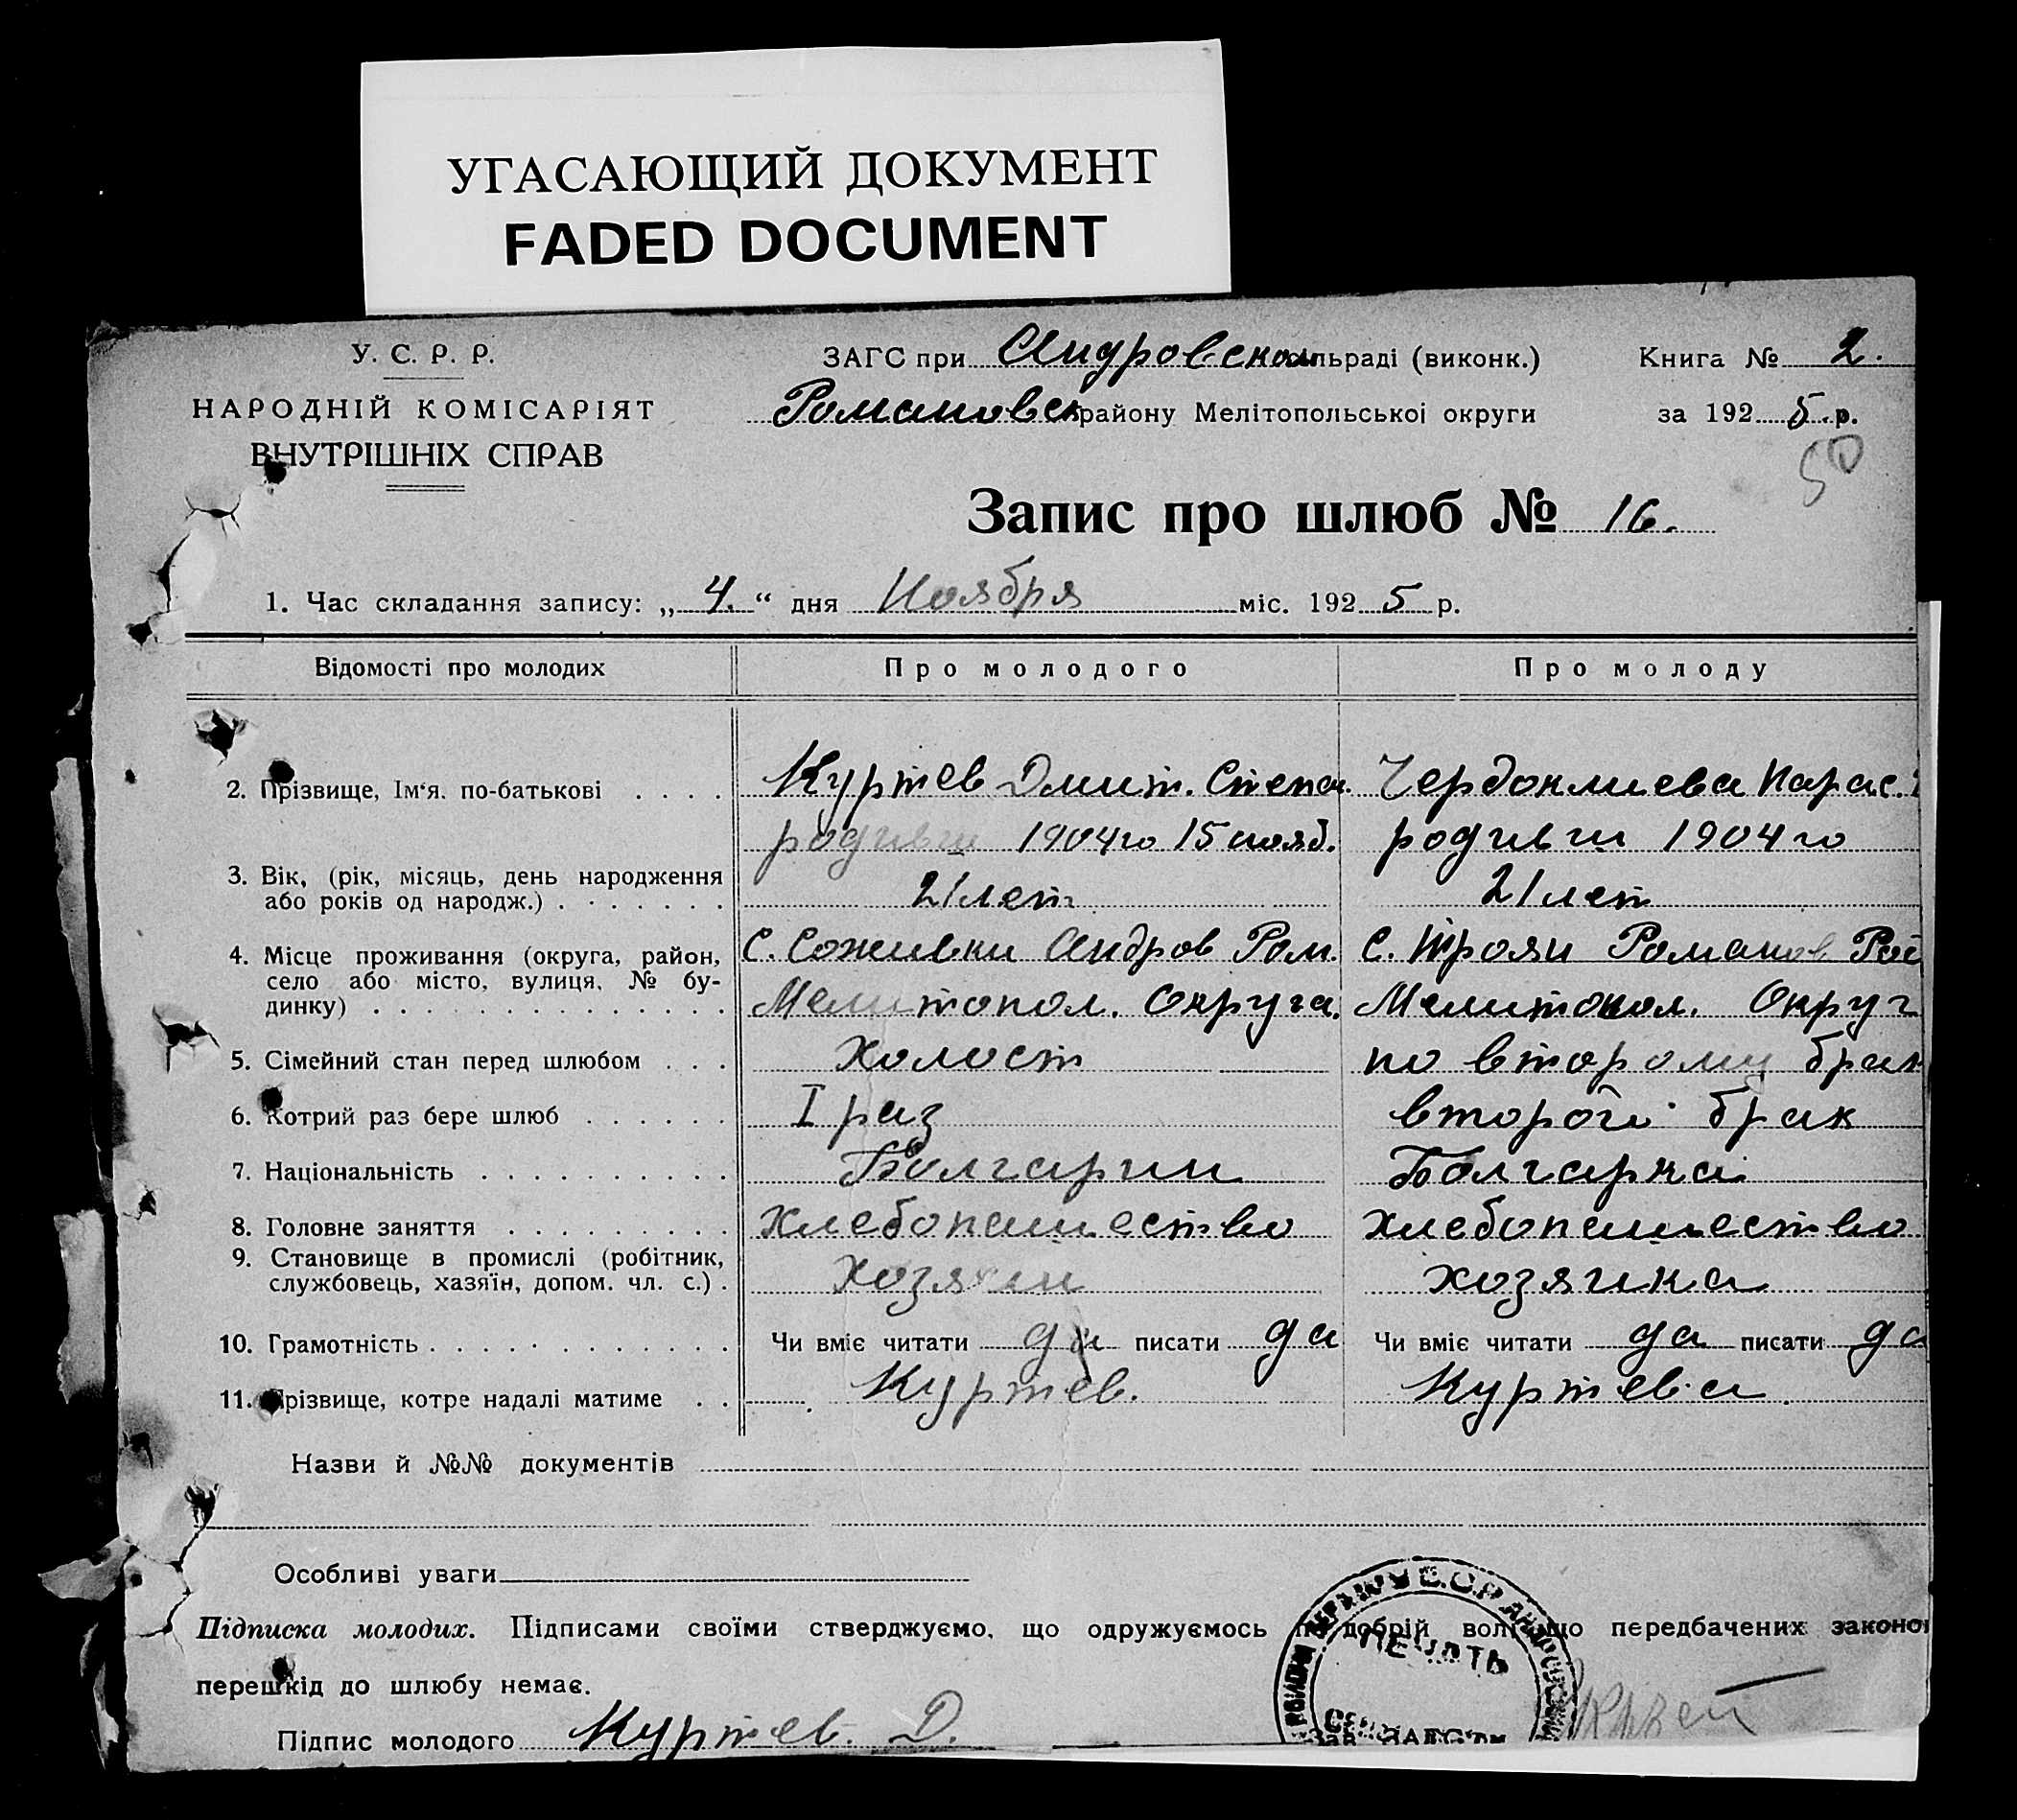 УГАСАЮЩИЙ ДОКУМЕНТ
FADED DOCUMENT
У. С. Р. Р.
НАРОДНІЙ КОМІСАРІЯТ
ВНУТРІШНІХ СПРАВ
ЗАГС при Андровском сільраді (виконк.)
Романовск району Мелітопольської округи
Книга № 2.
за 192 5 р.
50
Запис про шлюб № 16.
1. Час складання запису: „ 4. “ дня Ноября міс. 192 5 р.
Відомості про молодих Про молодого Про молоду
2. Прізвище, Ім'я. по-батькові . . . . Куртев Дмит. Степан. Чердоклиева Парас.
родивш 1904го 15 нояб. родивш 1904го
3. Вік, (рік, місяць, день народження
або років од народж.) . . . . . . . 21 лет 21 лет
4. Місце проживання (округа, район,
село або місто, вулиця, № бу-
динку) . . . . . . . . . . . . . . .
С. Андров Ром. С. Троян Романов Рай
Мелитопол. Округа. Мелитопол. Округ
5. Сімейний стан перед шлюбом . . . Холост по второму брак
6. Котрий раз бере шлюб . . . . . . I раз второй брак
7. Національність . . . . . . . . . . Болгарин Болгарка
8. Головне заняття . . . . . . . . . Хлебопашество хлебопашество
9. Становище в промислі (робітник,
службовець, хазяїн, допом. чл. с.) . Хозяин хозяйка
10. Грамотність . . . . . . . . . . . . . Чи вміє читати да писати да Чи вміє читати да писати да
11. Прізвище, котре надалі матиме . . Куртев. Куртева
Назви й №№ документів
Особливі уваги
Підписка молодих. Підписами своїми стверджуємо, що одружуємось по добрій волі що передбачених законом
перешкід до шлюбу немає.
ПЕЧАТЬ
Підпис молодого Куртев. Д.
Зав. ЗАГС'ом